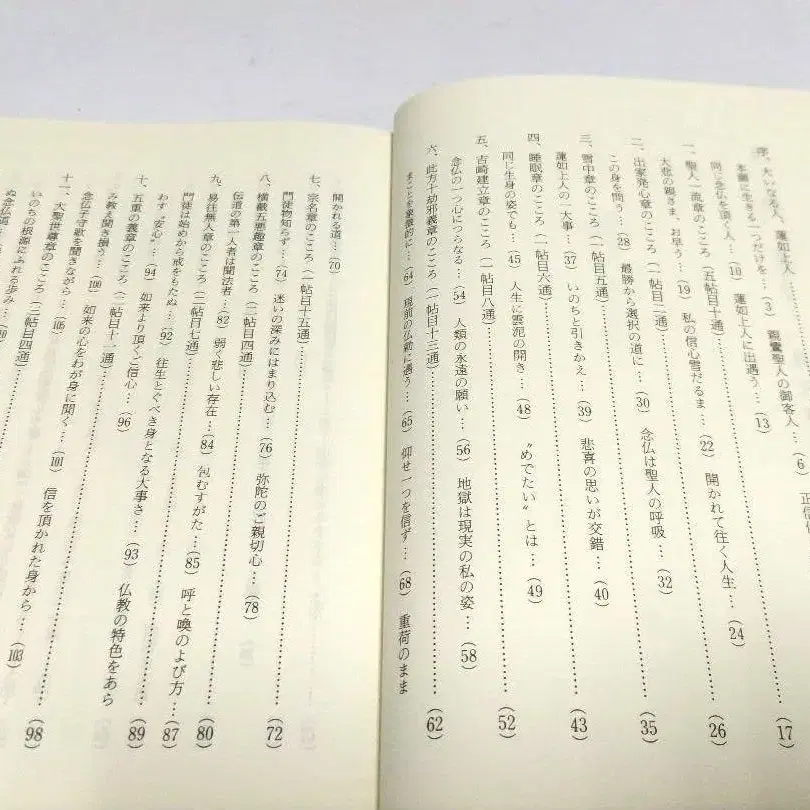 序、大いなる人、蓮如上人
本願に生きる一つだけを…(3)　親鸞聖人の御客人…(6)　正信
同じ念仏を頂く人…(10)　蓮如上人に出遇う…(13)
一、聖人一流章のこころ(五帖目十通)……(17)
大悲の親さま、お早う…(19)　私の信心雪だるま…(22)　開かれて往く人生…(24)
二、出家発心章のこころ(一帖目二通)……(26)
この身を問う…(28)　最勝から選択の道に…(30)　念仏は聖人の呼吸…(32)
三、雪中章のこころ(一帖目五通)……(35)
蓮如上人の一大事…(37)　いのちと引きかえ…(39)　悲喜の思いが交錯…(40)
四、睡眠章のこころ(一帖目六通)……(43)
同じ生身の姿でも…(45)　人生に雲泥の開き…(48)　〝めでたい〟とは…(49)
五、吉崎建立章のこころ(一帖目八通)……(52)
念仏の一つ心につらなる…(54)　人類の永遠の願い…(56)　地獄は現実の私の姿…(58)
六、此方十劫邪義章のこころ(一帖目十三通)……(62)
まことを象徴的に…(64)　現前の仏勅に遇う…(65)　仰せ一つを信ず…(68)　重荷のまま
開かれる道…(70)
七、宗名章のこころ(一帖目十五通)……(72)
門徒物知らず…(74)　迷いの深みにはまり込む…(76)　弥陀のご親切心…(78)
八、横截五悪趣章のこころ(二帖目四通)……(80)
伝道の第一人者は聞法者…(82)　弱く悲しい存在…(84)　包むすがた…(85)　呼と喚のよび方…(87)
九、易往無人章のこころ(二帖目七通)……(89)
門徒は始めから戒をもらぬ…(92)　往生とぐべき身となる大事さ…(93)　仏教の特色をあら
わす〝安心〟…(94)　如来より頂くご信心…(96)
十、五重の義章のこころ(二帖目十一通)……(98)
み教え聞き損う…(100)　如来の心をわが身に聞く…(101)　信を頂かれた身から…(103)
念仏子守歌を聞きながら…(105)
十一、大聖世尊章のこころ(三帖目四通)……
いのちの根源にふれる歩み…(109)
ぬ念仏道…